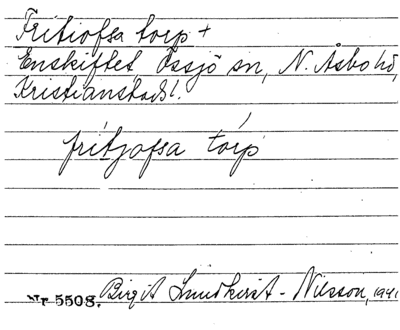 Fritiofsa torp +
Enskiftet Össjö sn, N. Åsbo hd,
Kristianstads l.
frítjofsa tórp
Nr 5508. Birgit Lundkvist - Nilsson, 1941